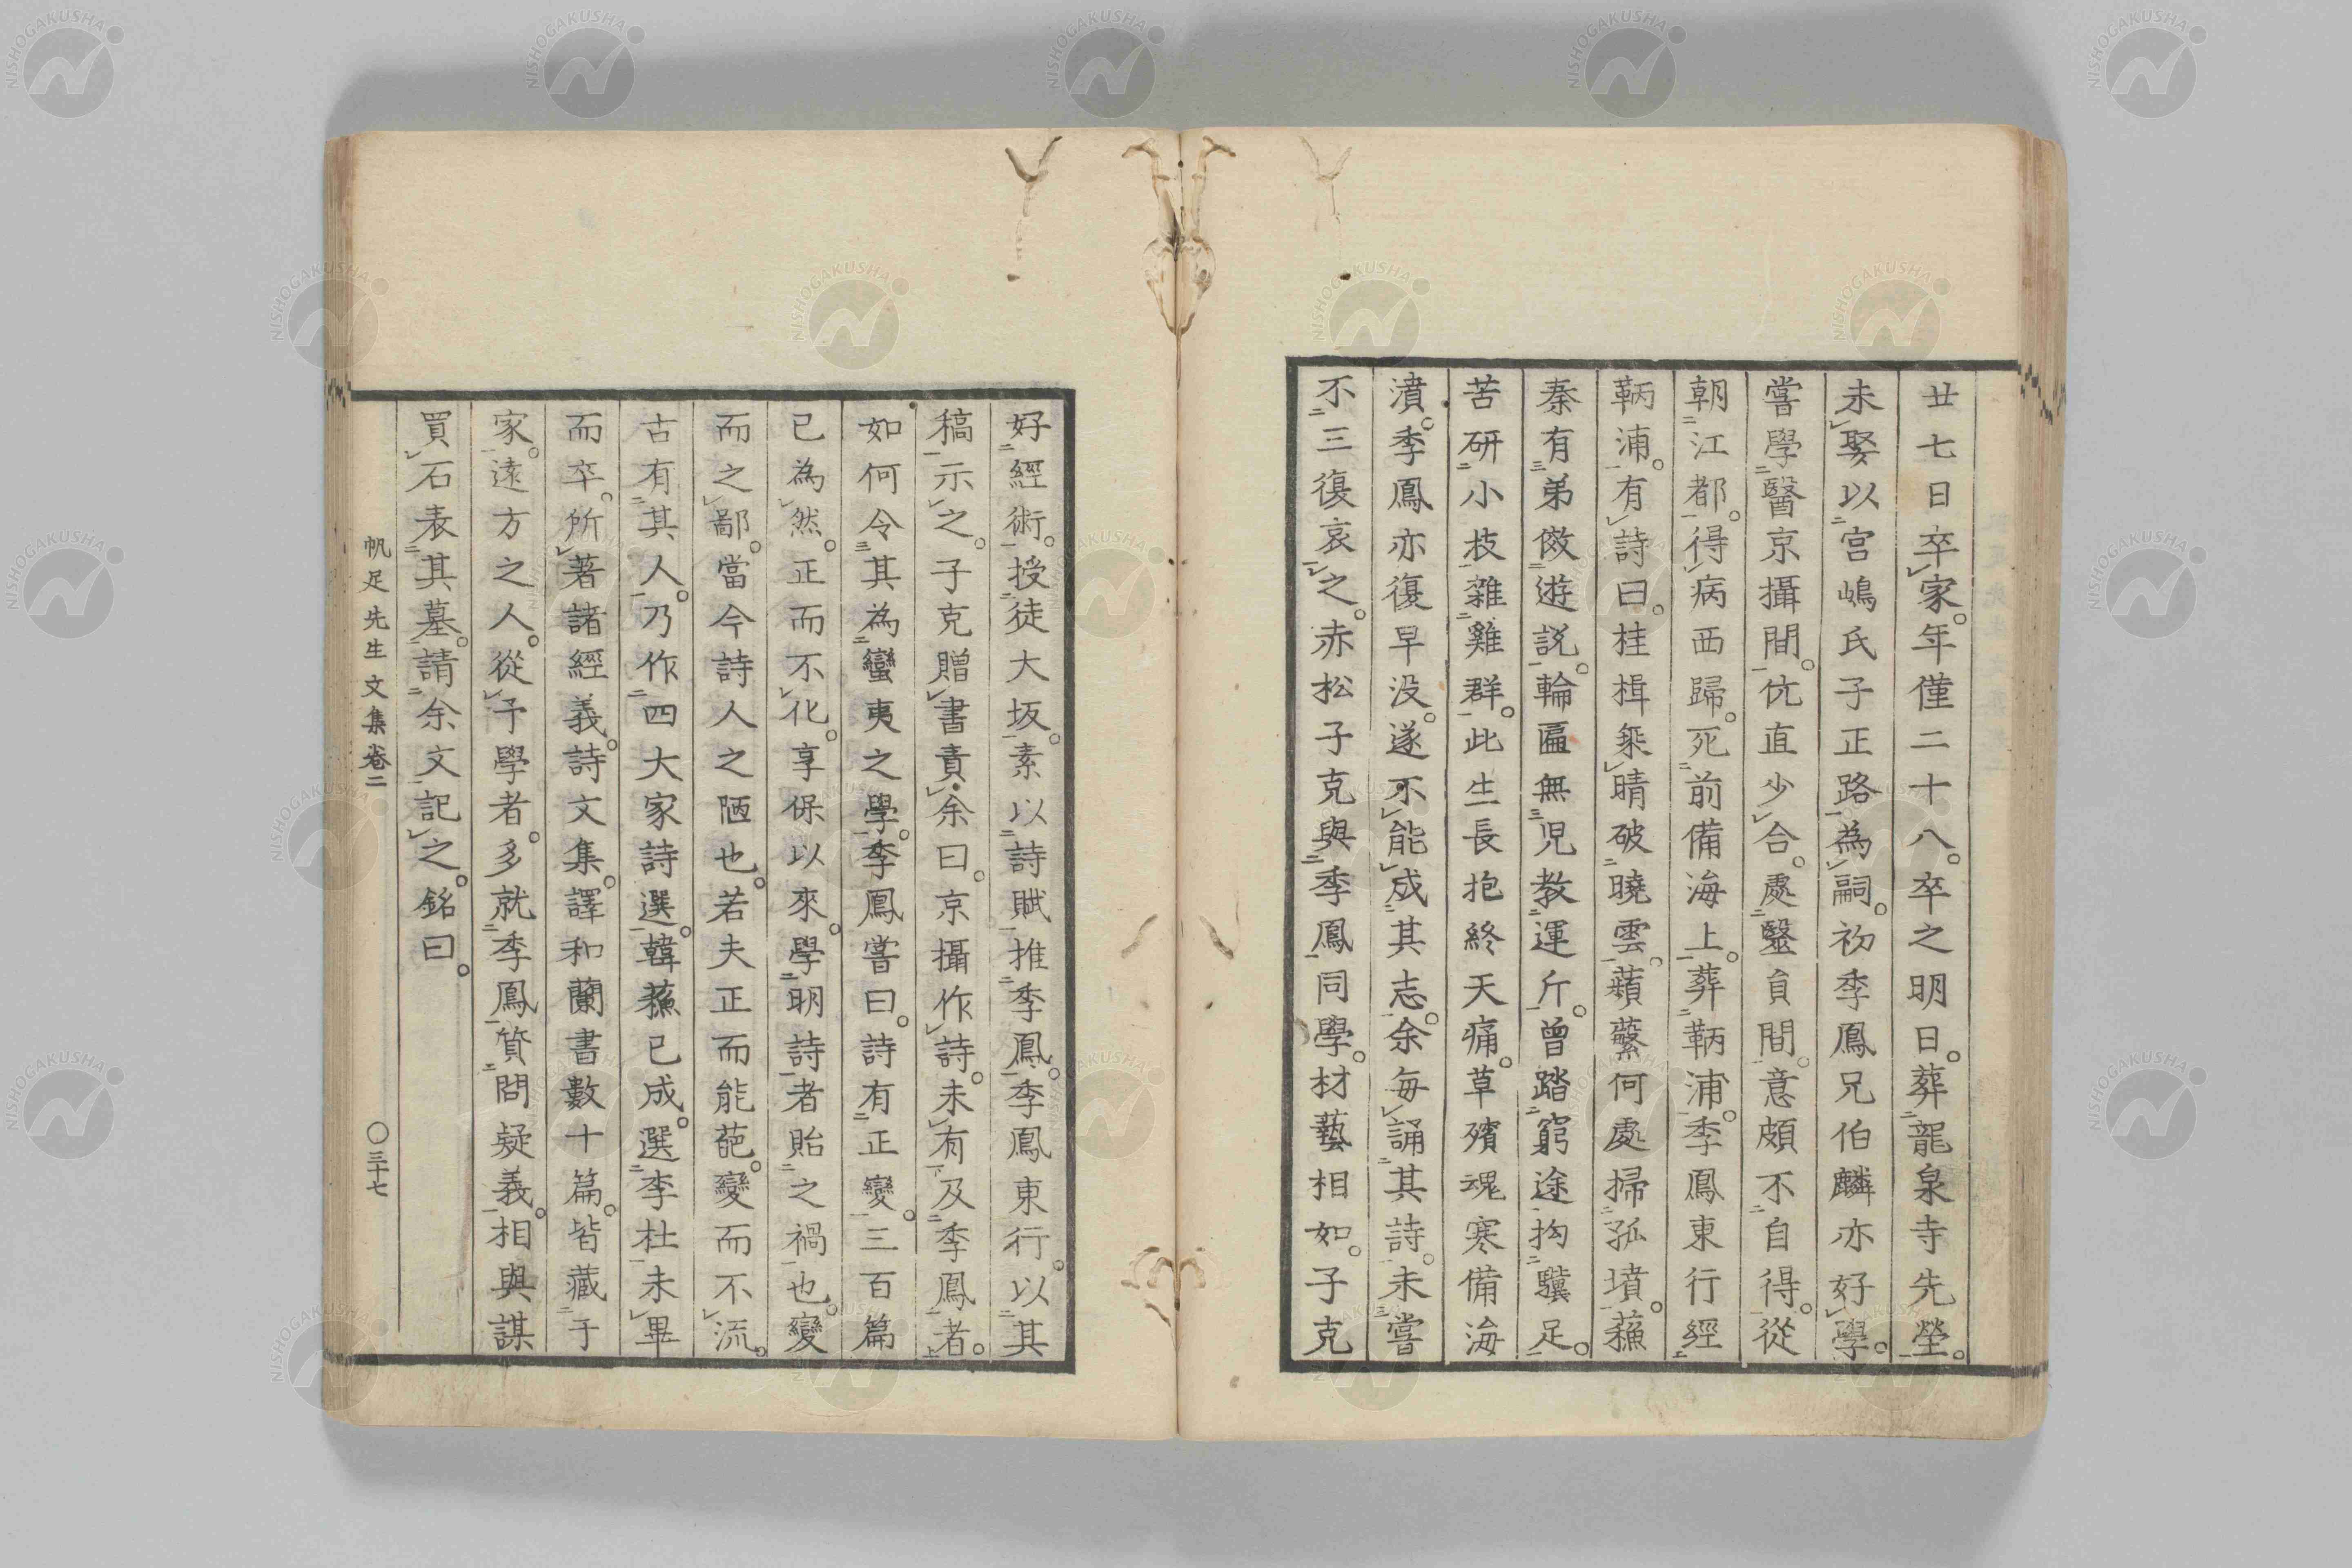 廿七日卒家。年僅二十八。卒之明日。葬龍泉寺先塋。
未娶以宮嶋氏子正路為嗣。初季鳳兄伯麟亦好學。
嘗學醫京攝間。伉直少合。處毉員間。意頗不自得。從
朝江都。得病西歸。死前備海上。葬鞆浦。季鳳東行經
鞆浦。有詩曰。桂楫乘晴破曉雲。蘋蘩何處掃孤墳。蘓
秦有弟傚遊說。輪匾無児教運斤。曾踏窮途拘驥足。
苦研小技雜雞群。此生長抱終天痛。草殯魂寒備海
濆。季鳳亦復早没。遂不能成其志。余每誦其詩。未嘗
不三復哀之。赤松子克與季鳳同學。材藝相如。子克
好經術。授徒大坂。素以詩賦推季鳳。季鳳東行。以其
稿示之。子克贈書責余曰。京攝作詩。未有及季鳳者。
如何令其為蠻夷之學。季鳳嘗曰。詩有正變。三百篇
已為然。正而不化。享保以來。學明詩者貽之禍也。變
而之鄙。當今詩人之陋也。若夫正而能葩。變而不流。
古有其人。乃作四大家詩選。韓蘓已成。選李杜未畢
而卒。所著諸經義。詩文集。譯和蘭書數十篇。皆藏于
家。遠方之人。從予學者。多就季鳳質問疑義。相與謀
買石表其墓。請余文記之。銘曰。
帆足先生文集卷二
〇三十七
NISHOGAKUSHA